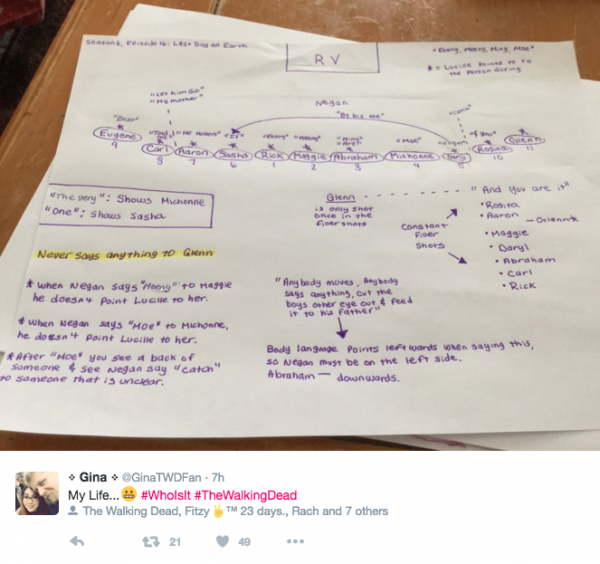 Season 6, Episode 16: Last Day on Earth
RV
"Eeeny, Meeny, Miny, Moe"
* = Lucille Points to to
the Person during
"Let him Go"
"My mother"
Negan
"By his toe"
"Dear"
"Catch"
"It"
"Eeny"
"Meeny"
"Miny"
"Moe"
"A tiger"
"If You"
Eugene
Carl
Aaron
Sasha
Rick
Maggie
Abraham
Michonne
Daryl
Rosita
Glenn
9
8
7
6
1
2
3
4
5
10
11
"The very": Shows Michonne
"One": Shows Sasha
Never says anything to Glenn
* When Negan says "Meeny" to Maggie
he doesn't Point Lucille to her.
* When Negan says "Moe" to Michonne,
he doesn't Point Lucille to her.
* After "Moe" you see a back of
someone & see Negan say "catch"
to someone that is unclear.
Glenn
is only shot
once in the
filler shots
Constant
Filler
Shots
"And You are it"
• Rosita
• Aaron
— Glenn*
• Maggie
• Daryl
• Abraham
• Carl
• Rick
"Anybody moves, Anybody
says anything, cut the
boys other eye out & feed
it to his father"
Body language Points leftwards when saying this,
so Negan must be on the left side.
Abraham — downwards.
Gina @GinaTWDFan · 7h
My Life...😬 #WhoIsIt #TheWalkingDead
The Walking Dead, Fitzy✌™ 23 days., Rach and 7 others
21
49